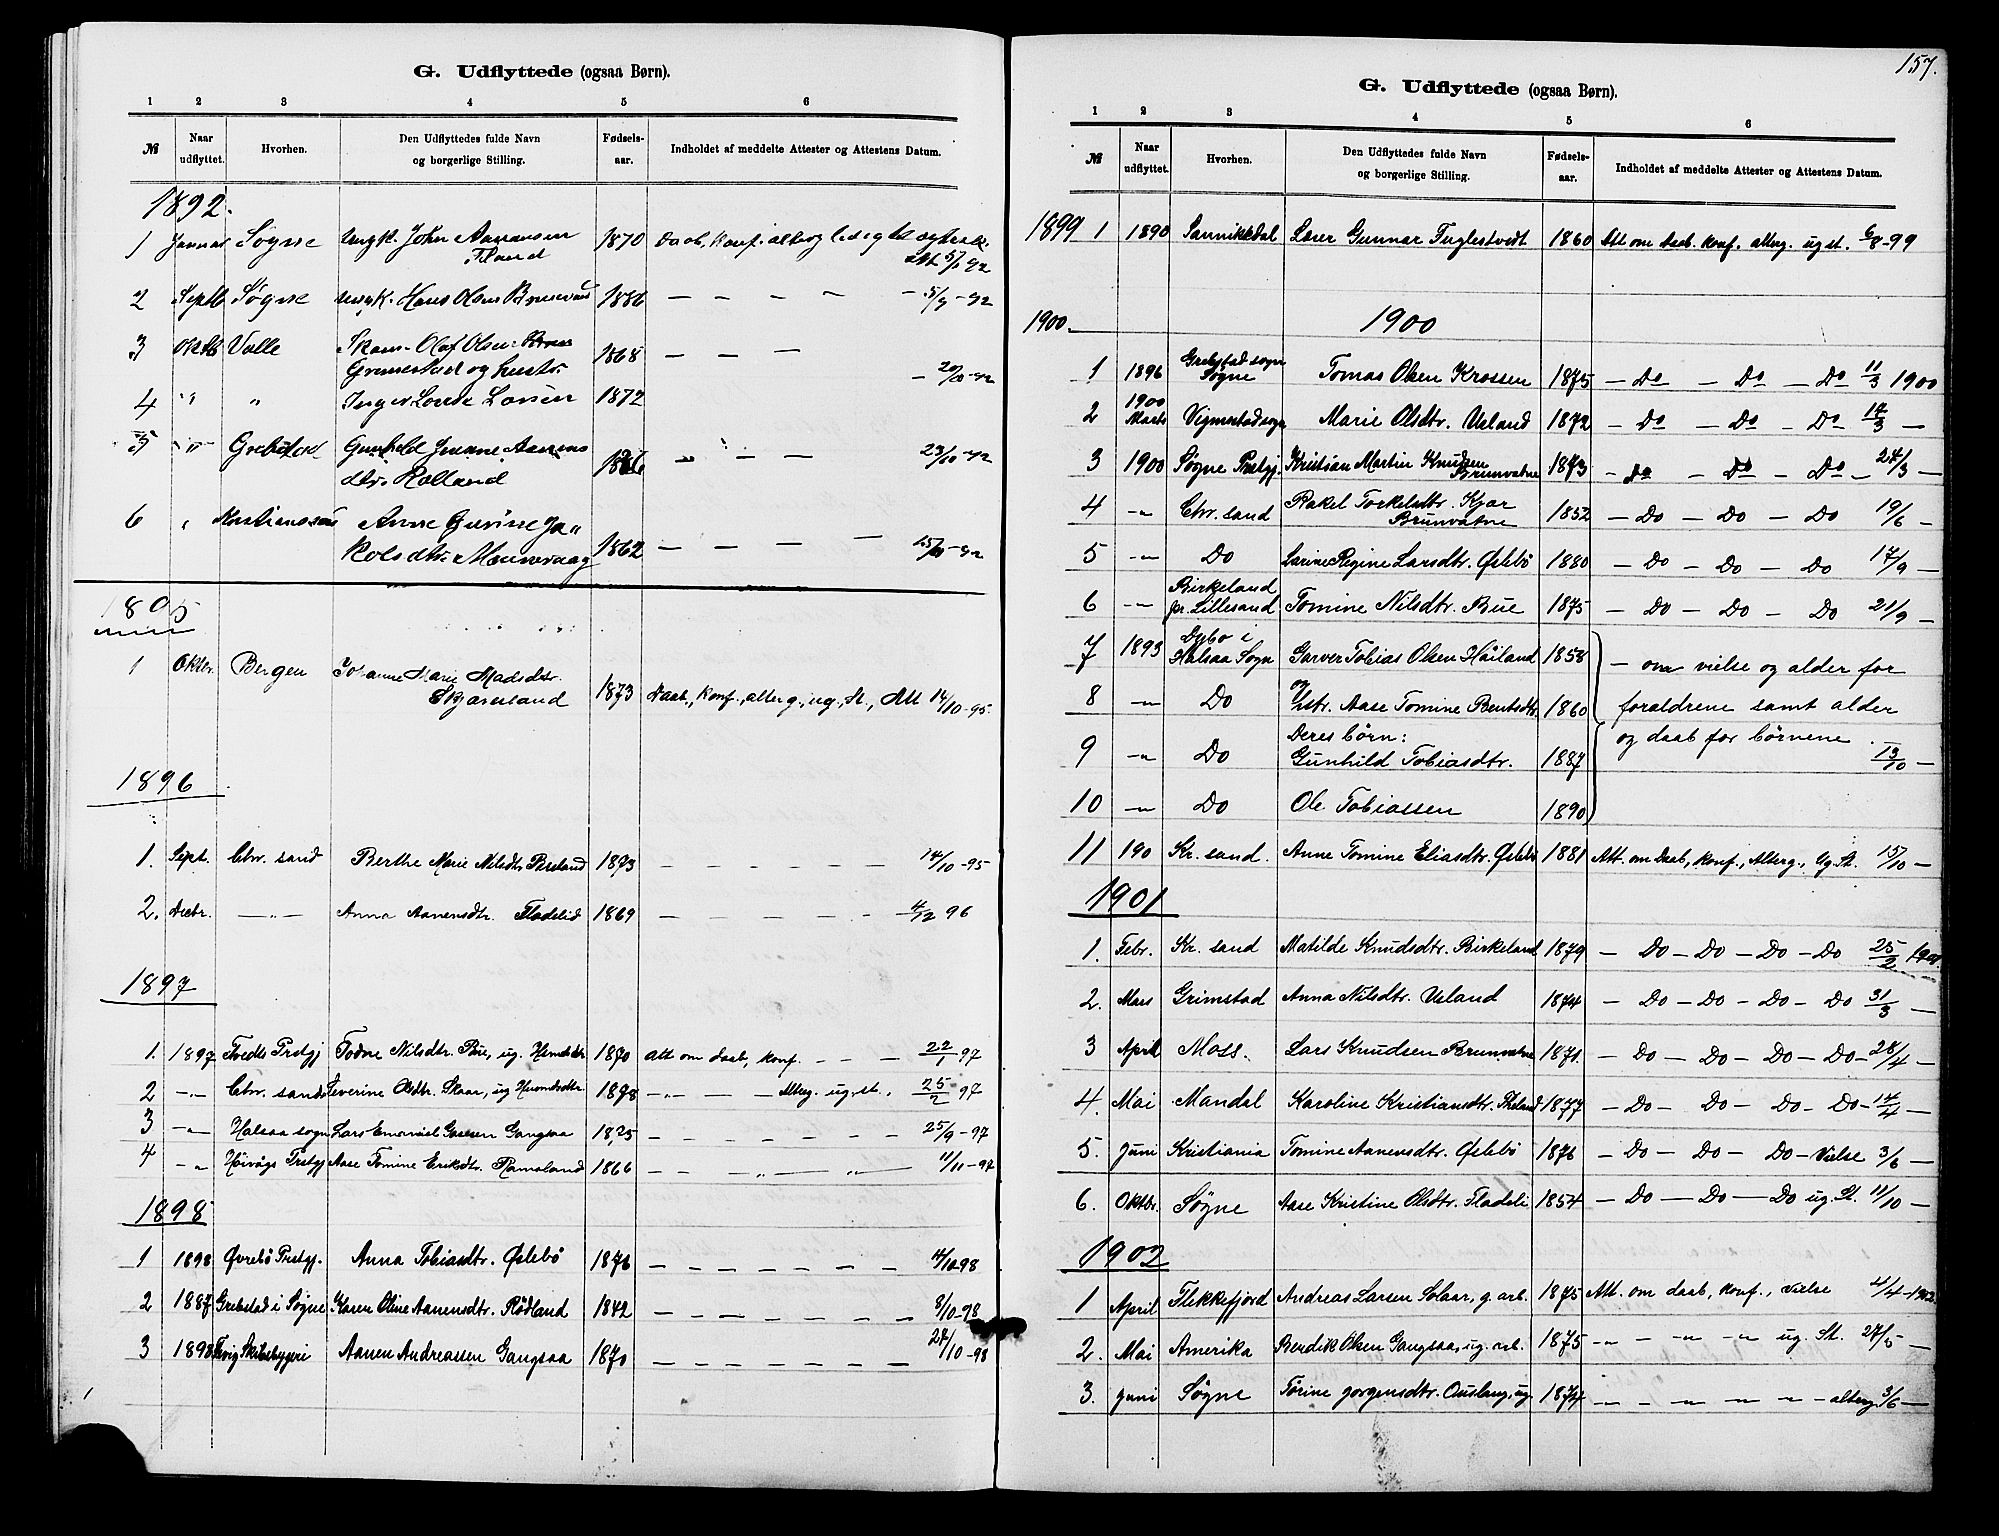 G. Udflyttede (ogsaa Børn).
1 2 3 4 5 6
№ Naar udflyttet. Hvorhen. Den Udflyttedes fulde Navn og borgerlige Stilling. Fødsels-aar. Indholdet af meddelte Attester og Attestens Datum.
1892.
1 Januar Søgne Ungk. John Aanensen 1870 Daab, Konf. alterg ledighed og
2 Septb Søgne ungk. Hans Olsen 1886 — — — — — 5/9 -92
3 Oktb Valle Olaf Olsen 1868 — — —
Grimestad og hustr. — 20/10 -92
4 " " Inger Lovise Larsen 1872
5 " Grebstad Gunhild Aanens
dtr. Holland 23/10 -92
6 " Kristianssand Anne Gurine Ja"
kobsdtr. 1862 — — — — 15/10 -92
1895
1 Oktbr. Bergen Johanne Marie Madsdtr.
1873 Daab, Konf., alterg., ug. St., Att 14/10-95.
1896
1. Sept. Chr. sand Berthe Marie Nilsdtr. 1873 — — — — — 14/10 -95
2. Decbr. —"— Anna Aanensdtr. Fladelid 1869 — — — — — 4/12 96
1897
1. 1897 Tvedts Prstgj Todne Nilsdtr. Bue, ug. 1870 Att om daab, konf. - - — 22/1 97
2 —"— Chr. sand Severine Olsdtr. Skaar, ug 1878 —"— — — Alterg. ug. st. , 25/2 97
3 —"— Halsaa sogn Lars Emanuel Gangsaa — — — — — 25/9 -97
4 —"— Høivågs Prstgj Aase Tomine Eriksdtr. 1866 — — — " — " — 11/11 -97
1898
1 1898 Øvrebø Prstgj. Anna Tobiasdtr. Øslebø 1876 — — — — — — 14/10-98
2 1887 Grebstad i Søgne Karen Oline Aanensdtr. Rødland 1842 — — — — — — 8/10 -98
3 1898 Aanen Andreassen Gangsaa 1870 — — — — — — 27/10 -98
157.
G. Udflyttede (ogsaa Børn).
1 2 3 4 5 6
№ Naar udflyttet. Hvorhen. Den Udflyttedes fulde Navn og borgerlige Stilling. Fødsels-aar. Indholdet af meddelte Attester og Attestens Datum.
1899 1 1890 Sannikedal Lærer Gunnar Fuglestvedt 1860 Att om daab. konf. alterg. ug st. 6/8 -99
1900. 1900
1 1896 Grebstad sogn Søgne Tomas Olsen Krossen 1875 — Do — Do — Do 11/3 1900
2 1900 Marts Vigmostad sogn Marie Olsdtr. Usland 1872 — Do — Do Do 17/3 —
3 1900 Søgne Prstgj. Kristian Martin Knudsen Brunvatne 1873 — Do Do — Do — 24/3 —
4 —"— Chr. sand Rakel Torkelsdtr. Kjær Brunvatne 1852 — Do — Do — Do 19/6 —
5 —"— Do Larine Regine Larsdtr. Øslebø 1880 — Do — Do — Do 17/9 —
6 —"— Birkeland pr. Lillesand Tomine Nilsdtr. Bue 1875 — Do — Do — Do 21/9 —
7 1893 Dybo i Halsaa Sogn Garver Tobias Olsen Høiland 1858 — om vielse og alder for
8 —"— Do og Hstr. Aase Tomine Berntsdtr. 1860 forældrene samt alder
9 —"— Do Deres børn: Gunhild Tobiasdtr. 1887 og daab for børnene. 13/10 —
10 —"— Do Ole Tobiassen 1890
11 190 Kr. sand. Anne Tomine Eliasdtr. Øslebø 1881 Att. om Daab, konf., Alterg., Ug. St. 15/10 —
1901
1. Febr. Kr. sand Matilde Knudsdtr. Birkeland 1879 — Do — Do — Do — Do 25/2 1901.
2. Mars Grimstad Anna Nilsdtr. Usland 1874 — Do — Do — Do — Do 31/3 —
3 April Moss. Lars Knudsen Brunvatne 1871. — Do — Do — Do — Do — 28/4 —
4. Mai Mandal Karoline Kristiansdtr. 1877 — Do — Do — Do — 14/4 —
5. Juni Kristiania Tomine Aanensdtr. Øslebø 1876 — Do — Do — Do — Vielse 3/6 —
6. Oktbr. Søgne Aase Kristine Olsdtr. Fladeli 1854 — Do — Do — Do ug. St. 11/10 —
1902
1 April Flekkefjord Andreas Larsen Solaar, g. arb. 1875 Att. om daab, konf., Vielse 4/4 -1902.
2. Mai Amerika Bendik Olsen Gangsaa, ug. arb. 1875 —"— — —"— —"— ug. St. 27/5 —
3. Juni Søgne Tørine Jørgensdtr. Auslang, ug. 1874 — — — — — — alterg. 3/6 —